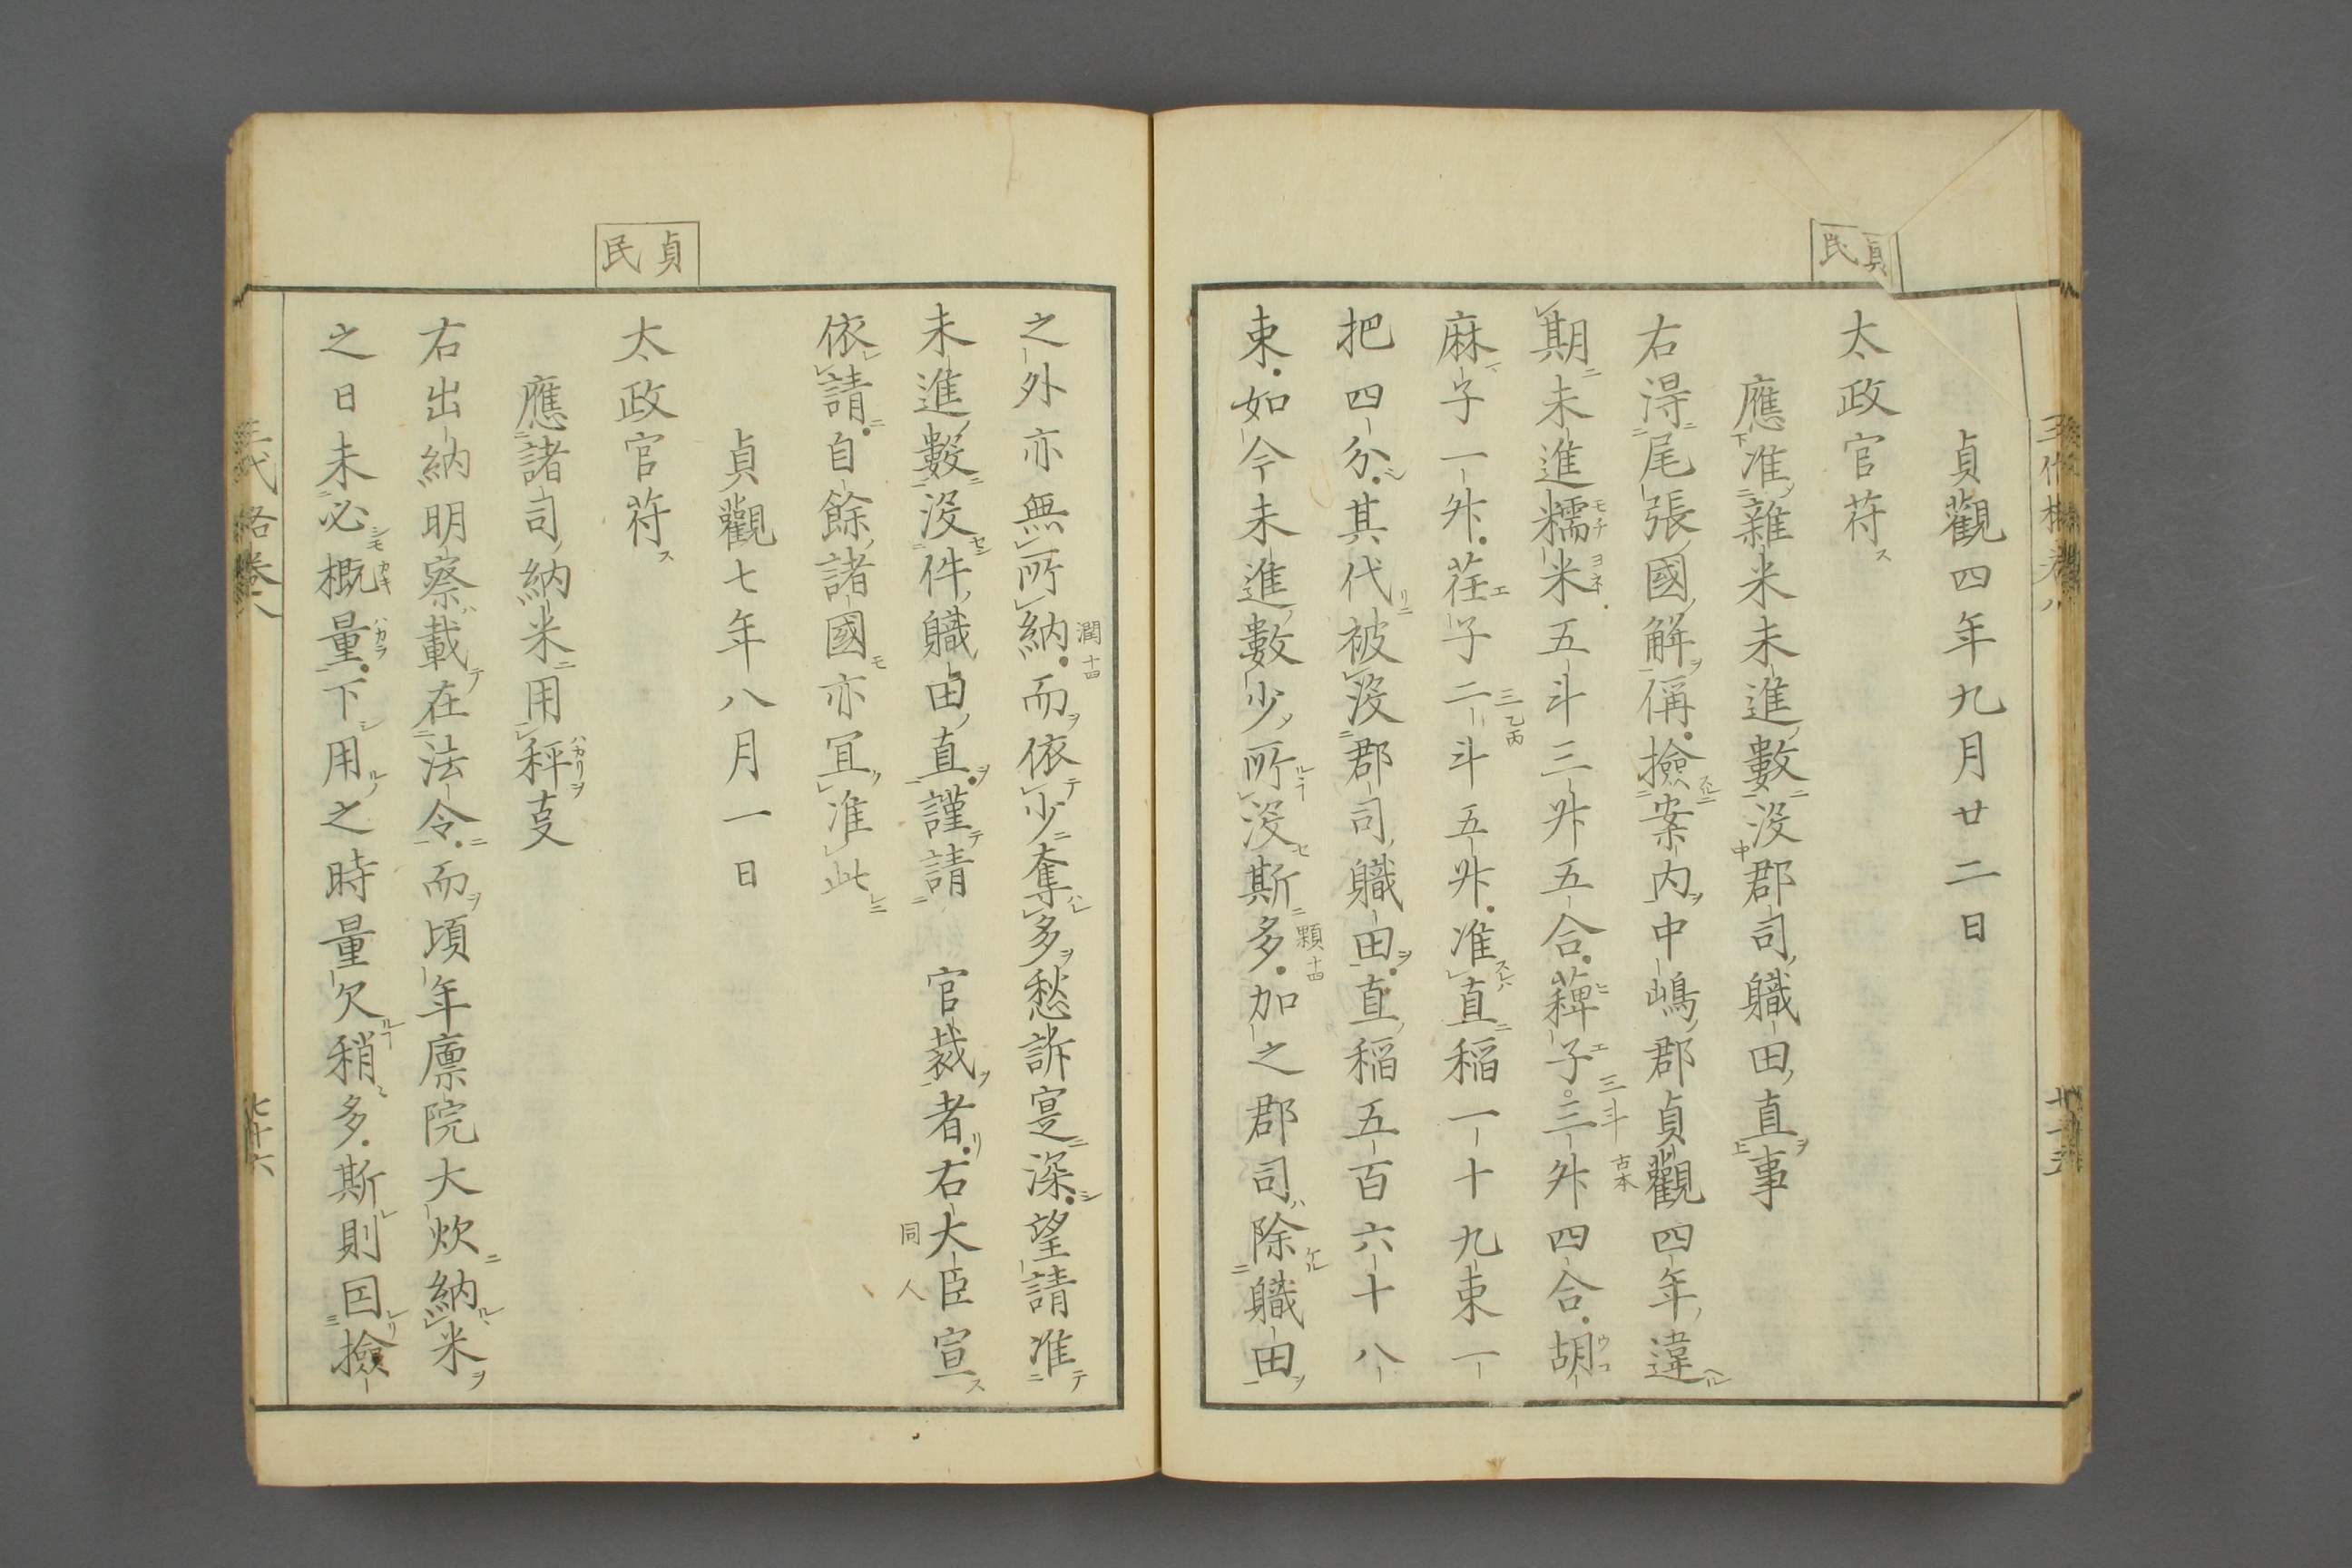 貞民
貞觀四年九月廿二日
太政官符
應准雜米未進數沒郡司職田直事
右得尾張國解偁撿案內中嶋郡貞觀四年違
期未進糯米五斗三升五合薭子三升四合胡
麻子一升荏子二斗五升准直稻一十九束一
把四分其代被沒郡司職田直稻五百六十八
束如今未進數少所沒斯多加之郡司除職田
貞民
之外亦無所納而依少奪多愁訴寔深望請准
未進數沒件職田直謹請　官裁者右大臣宣
依請自餘諸國亦宜准此
貞觀七年八月一日
太政官符
應諸司納米用秤事
右出納明察載在法令而頃年廩院大炊納米
之日未必概量下用之時量欠稍多斯則因撿